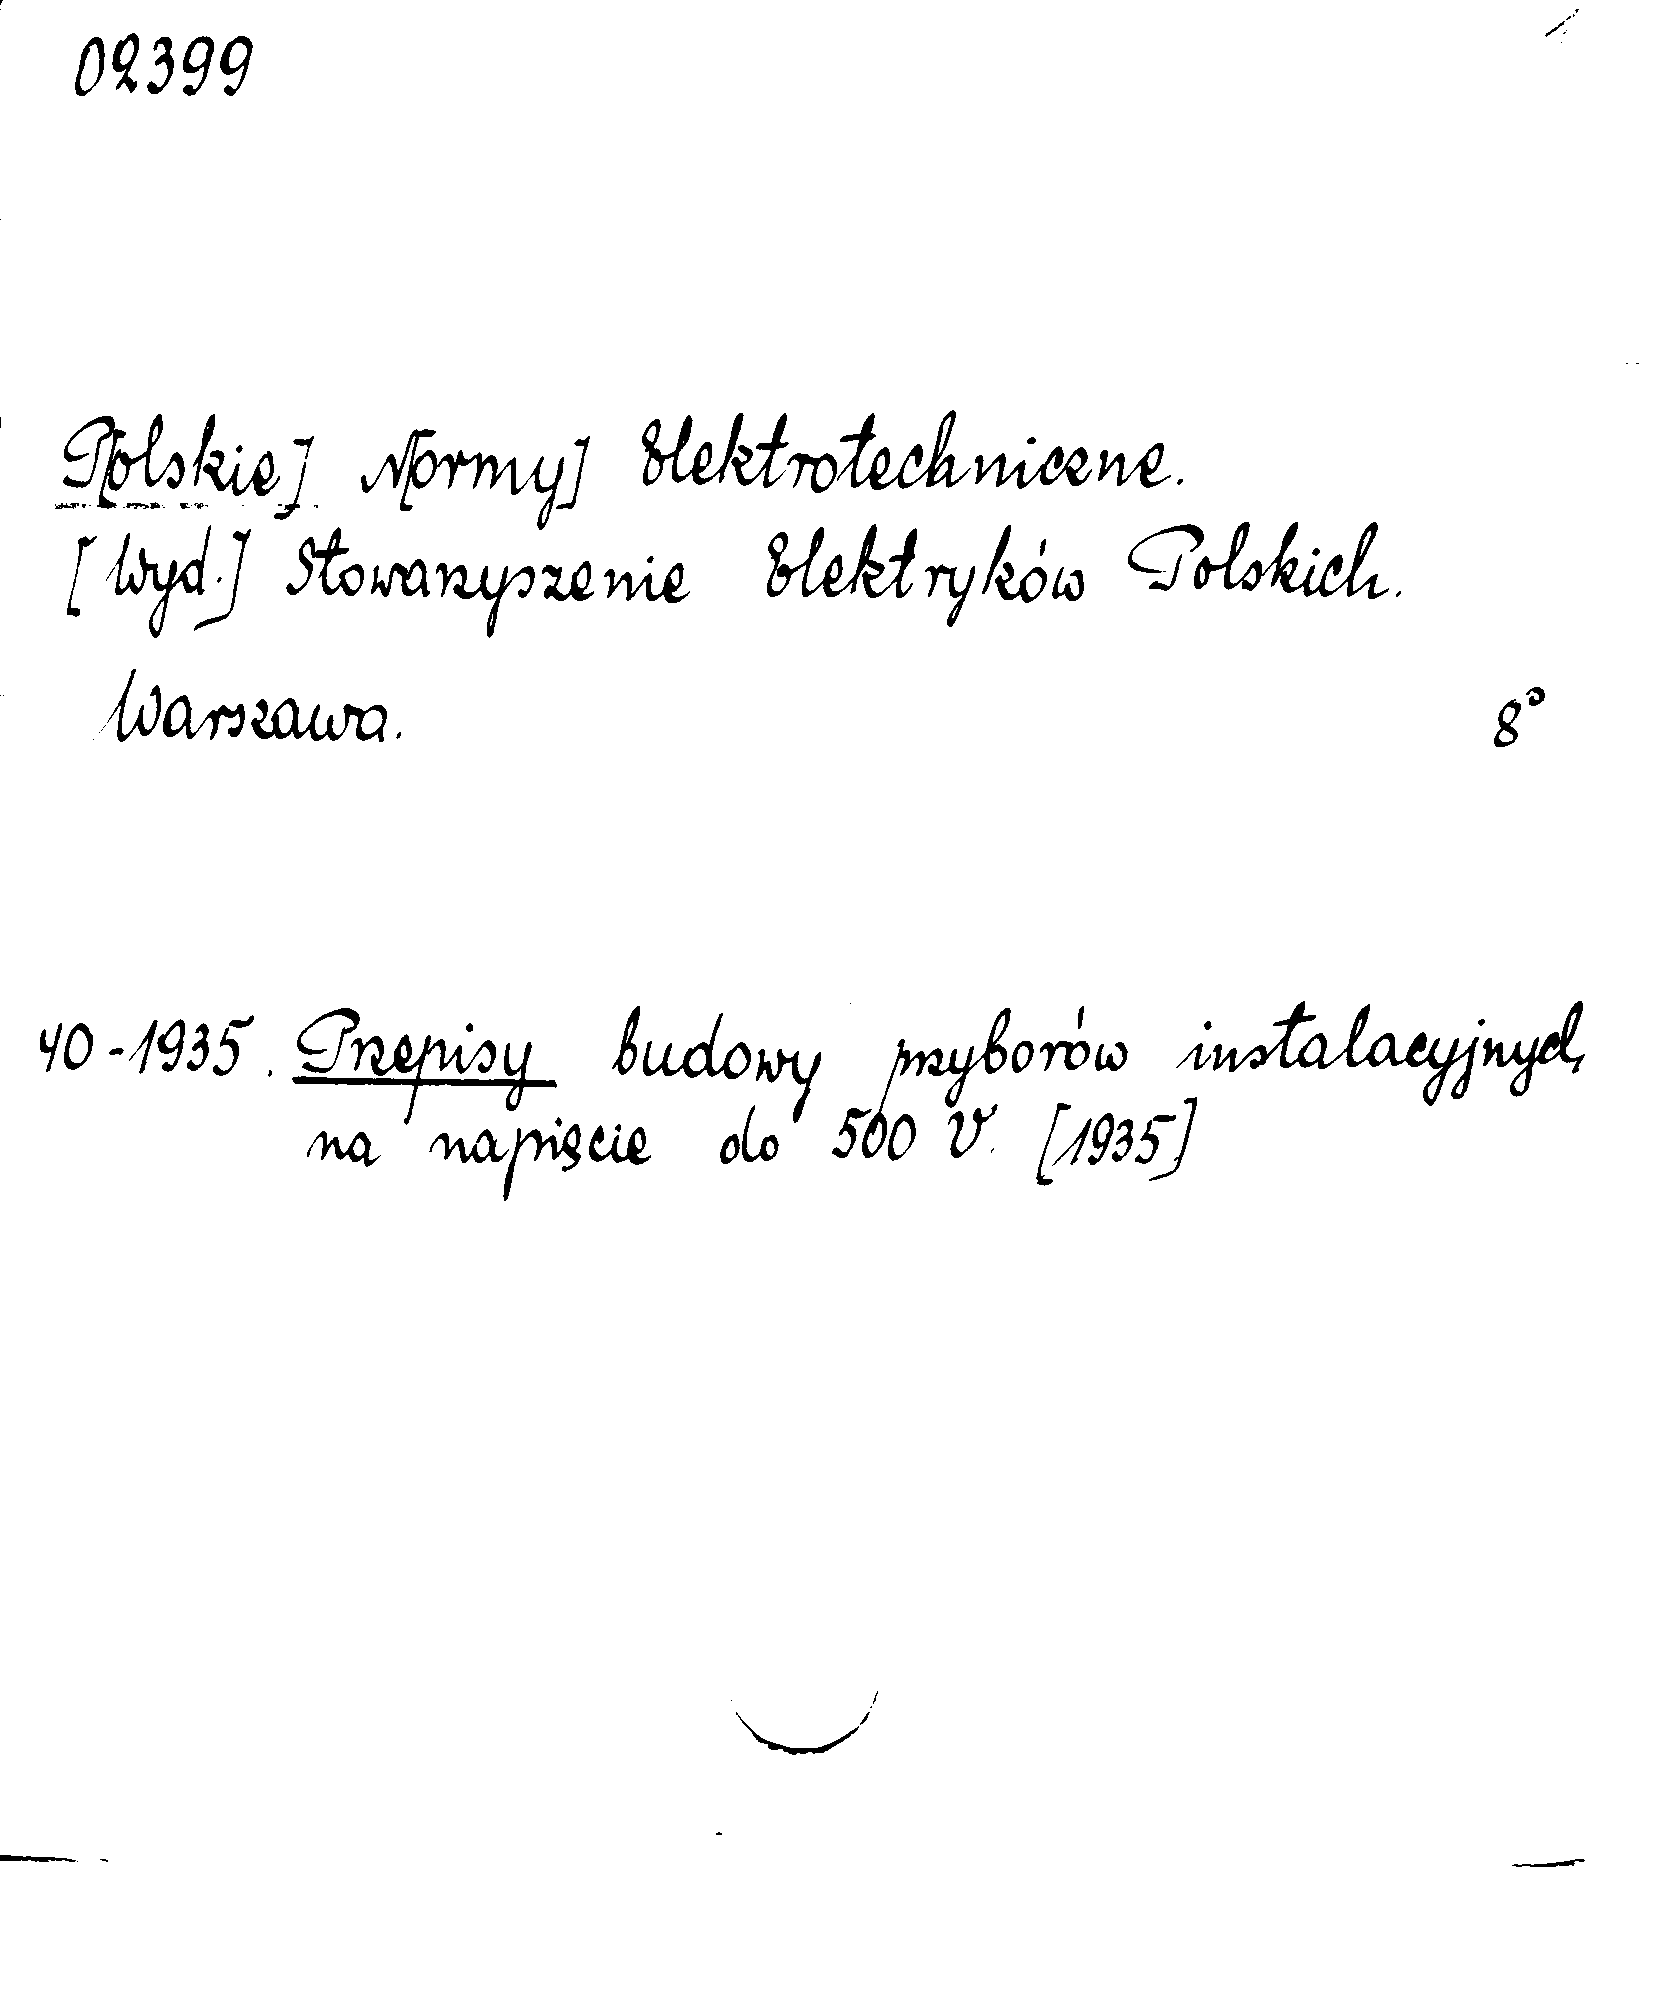 02399
P[olskie] N[ormy] Elektrotechniczne.
[Wyd.] Stowarzyszenie Elektryków Polskich.
Warszawa. 8°
40-1935. Przepisy budowy przyborów instalacyjnych
na napięcie do 500 V. [1935]